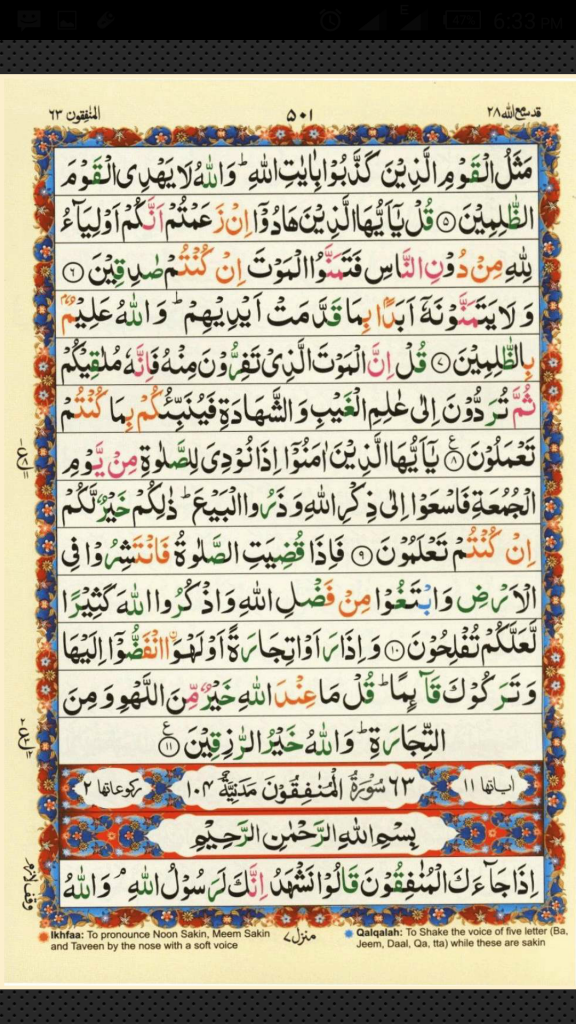 6:33 PM
47%
المنٰفقون ٦٣
٥٠١
قد سمع الله ٢٨
مَثَلُ الْقَوْمِ الَّذِيْنَ كَذَّبُوْا بِاٰيٰتِ اللّٰهِ ؕ وَاللّٰهُ لَا يَهْدِى الْقَوْمَ
الظّٰلِمِيْنَ ﴿٥﴾ قُلْ يٰۤاَيُّهَا الَّذِيْنَ هَادُوْۤا اِنْ زَعَمْتُمْ اَنَّكُمْ اَوْلِيَآءُ
لِلّٰهِ مِنْ دُوْنِ النَّاسِ فَتَمَنَّوُا الْمَوْتَ اِنْ كُنْتُمْ صٰدِقِيْنَ ﴿٦﴾
وَلَا يَتَمَنَّوْنَهٗۤ اَبَدًۢا بِمَا قَدَّمَتْ اَيْدِيْهِمْ ؕ وَاللّٰهُ عَلِيْمٌۢ
بِالظّٰلِمِيْنَ ﴿٧﴾ قُلْ اِنَّ الْمَوْتَ الَّذِىْ تَفِرُّوْنَ مِنْهُ فَاِنَّهٗ مُلٰقِيْكُمْ
ثُمَّ تُرَدُّوْنَ اِلٰى عٰلِمِ الْغَيْبِ وَالشَّهَادَةِ فَيُنَبِّئُكُمْ بِمَا كُنْتُمْ
تَعْمَلُوْنَ ﴿٨﴾ ع يٰۤاَيُّهَا الَّذِيْنَ اٰمَنُوْۤا اِذَا نُوْدِىَ لِلصَّلٰوةِ مِنْ يَّوْمِ
الْجُمُعَةِ فَاسْعَوْا اِلٰى ذِكْرِ اللّٰهِ وَذَرُوا الْبَيْعَ ؕ ذٰلِكُمْ خَيْرٌ لَّكُمْ
اِنْ كُنْتُمْ تَعْلَمُوْنَ ﴿٩﴾ فَاِذَا قُضِيَتِ الصَّلٰوةُ فَانْتَشِرُوْا فِى
الْاَرْضِ وَابْتَغُوْا مِنْ فَضْلِ اللّٰهِ وَاذْكُرُوا اللّٰهَ كَثِيْرًا
لَّعَلَّكُمْ تُفْلِحُوْنَ ﴿١٠﴾ وَاِذَا رَاَوْا تِجَارَةً اَوْ لَهْوَا۟ ۨانْفَضُّوْۤا اِلَيْهَا
وَتَرَكُوْكَ قَآئِمًا ؕ قُلْ مَا عِنْدَ اللّٰهِ خَيْرٌ مِّنَ اللَّهْوِ وَمِنَ
التِّجَارَةِ ؕ وَاللّٰهُ خَيْرُ الرّٰزِقِيْنَ ﴿١١﴾ ع
اٰياتها ١١
٦٣ سُوْرَةُ الْمُنٰفِقُوْنَ مَدَنِيَّةٌ ١٠٤
ركوعاتها ٢
بِسْمِ اللّٰهِ الرَّحْمٰنِ الرَّحِيْمِ
اِذَا جَآءَكَ الْمُنٰفِقُوْنَ قَالُوْا نَشْهَدُ اِنَّكَ لَرَسُوْلُ اللّٰهِ ۘ وَاللّٰهُ
وقف لازم
Ikhfaa: To pronounce Noon Sakin, Meem Sakin
and Taveen by the nose with a soft voice
منزل ٧
Qalqalah: To Shake the voice of five letter (Ba,
Jeem, Daal, Qa, tta) while these are sakin